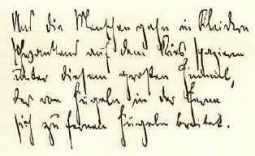 Und die Menschen gehn in Kleidern
schwankend auf dem Kies spazieren
unter diesem großen Himmel,
der von Hügeln in der Ferne
sich zu fernen Hügeln breitet.